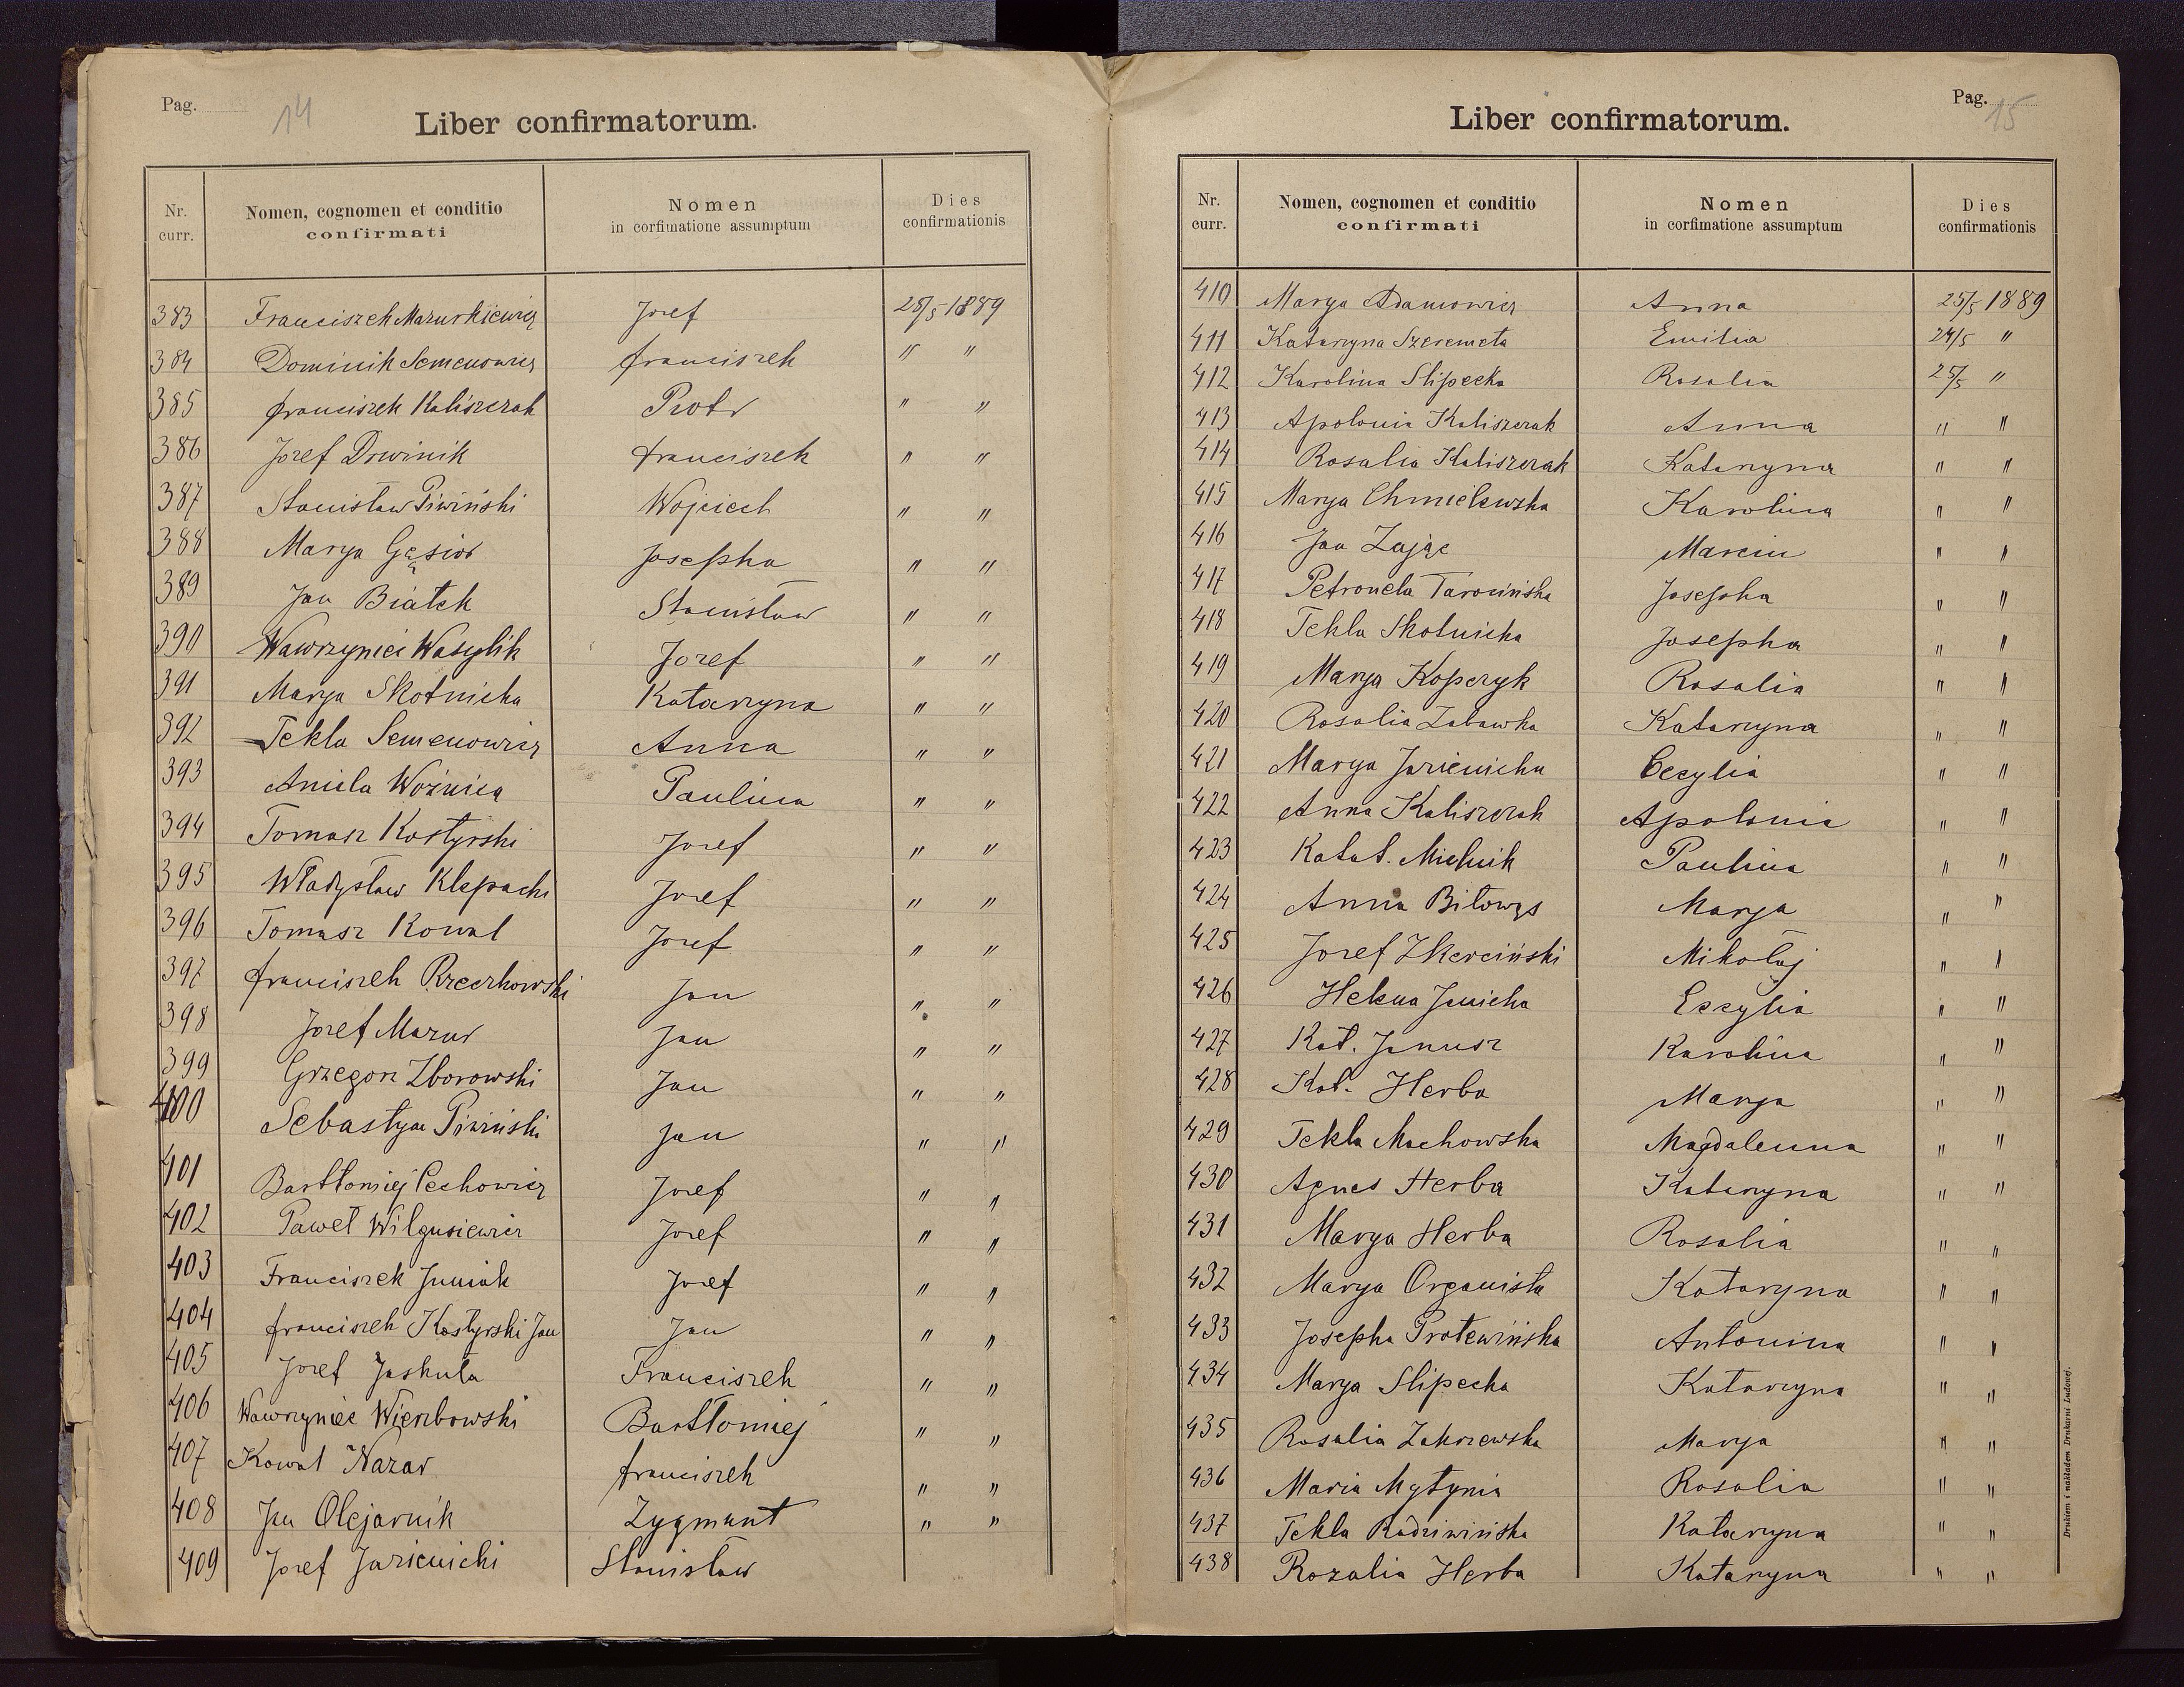 Pag. 14
Liber confirmatorum.
Nr. curr. Nomen, cognomen et conditio confirmati Nomen in corfimatione assumptum Dies confirmationis
383 Franciszek Mazurkiewicz Jozef 25/5 1889
384 Dominik Semenowicz franciszek " "
385 franciszek Kaliszczak Piotr " "
386 Jozef Drwinik franciszek " "
387 Stanisław Piwiński Wojciech " "
388 Marya Gąsior Josepha " "
389 Jan Białek Stanisław " "
390 Wawrzyniec Wasylik Jozef " "
391 Marya Skotnicka Katarzyna " "
392 Tekla Semenowicz Anna " "
393 Aniela Woźnica Paulina " "
394 Tomasz Kostyrski Jozef " "
395 Władysław Klepacki Jozef " "
396 Tomasz Kowal Jozef " "
397 franciszek Rzeczkowski Jan " "
398 Jozef Mazur Jan " "
399 Grzegorz Zborowski Jan " "
400 Sebastyan Piwiński Jan " "
401 Bartłomiej Cechowicz Jozef " "
402 Paweł Wilgusiewicz Jozef " "
403 Franciszek Juniak Jozef " "
404 franciszek Kostyrski Jan Jan " "
405 Jozef Jaskuła Franciszek " "
406 Wawrzyniec Wierzbowski Bartłomiej " "
407 Kowal Nazar franciszek " "
408 Jan Olejarnik Zygmunt " "
409 Jozef Jazienicki Stanisław
Pag. 15
Liber confirmatorum.
Nr. curr. Nomen, cognomen et conditio confirmati Nomen in corfimatione assumptum Dies confirmationis
410 Marya Adamowicz Anna 25/5 1889
411 Katarzyna Szeremeta Emilia 24/5 "
412 Karolina Slipecka Rosalia 25/5 "
413 Apolonia Kaliszczak Anna " "
414 Rosalia Kaliszczak Katarzyna " "
415 Marya Chmielewska Karolina " "
416 Jan Zając Marcin " "
417 Petronela Tarocińska Josepha " "
418 Tekla Skotnicka Josepha " "
419 Marya Koperzyk Rosalia " "
420 Rosalia Zabawka Katarzyna " "
421 Marya Jazienicka Cecylia " "
422 Anna Kaliszczak Apolonia " "
423 Katat. Mielnik Paulina " "
424 Anna Biłowys Marya " "
425 Jozef Zkerciński Mikołaj " "
426 Helena Janicka Cecylia " "
427 Kat. Janusz Karolina " "
428 Kat. Herba Marya " "
429 Tekla Machowska Magdalenna " "
430 Agnes Herba Katarzyna " "
431 Marya Herba Rosalia " "
432 Marya Organista Katarzyna " "
433 Josepha Protewińska Antonina " "
434 Marya Slipecka Katarzyna " "
435 Rosalia Zakrzewska Marya " "
436 Maria Mytynia Rosalia " "
437 Tekla Radziwińska Katarzyna " "
438 Rozalia Herba Katarzyna " "
Drukiem i nakładem Drukarni Ludowej.